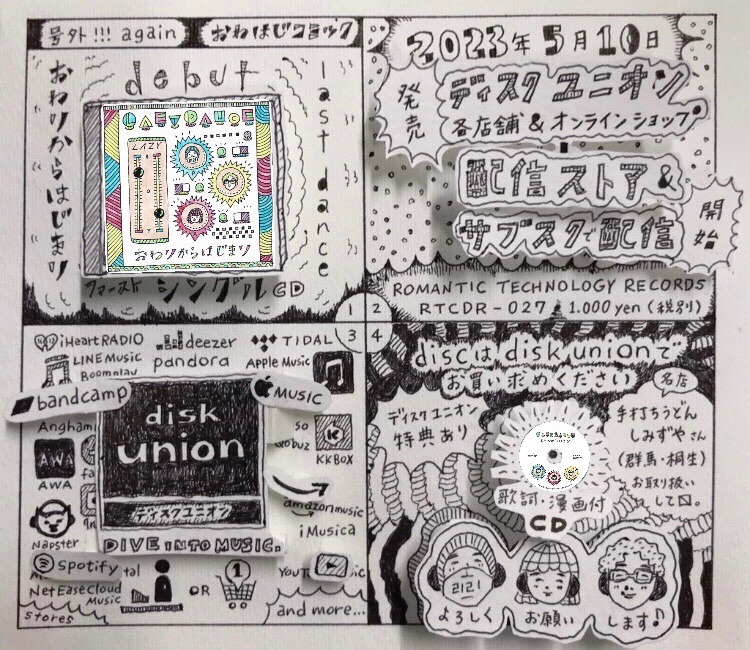 号外!!! again
おわはじコミック
debut
おわりからはじまり
last dance
LAST DANCE
LAZY
おわりからはじまり
ファーストシングルCD
1
2023年5月10日
発売
ディスクユニオン
各店舗&オンラインショップ
配信ストア&
サブスクで配信
開始
ROMANTIC TECHNOLOGY RECORDS
RTCDR-027 1.000yen(税別)
2
3
iHeartRADIO
deezer
TIDAL
LINE Music
pandora
Apple Music
Boomplay
bandcamp
MUSIC
Anghami
disk
union
ディスクユニオン
DIVE INTO MUSIC.
AWA
AWA
Qobuz
KKBOX
amazonmusic
iMusica
Napster
spotify
NetEaseCloud
Music
OR
1
and more...
stores
4
discはdisk unionで
お買い求めください
ディスクユニオン
特典あり
名店
手打ちうどん
しみずやさん
(群馬・桐生)
お取り扱い
して〼。
歌詞・漫画付
CD
2121
よろしく
お願い
します♪